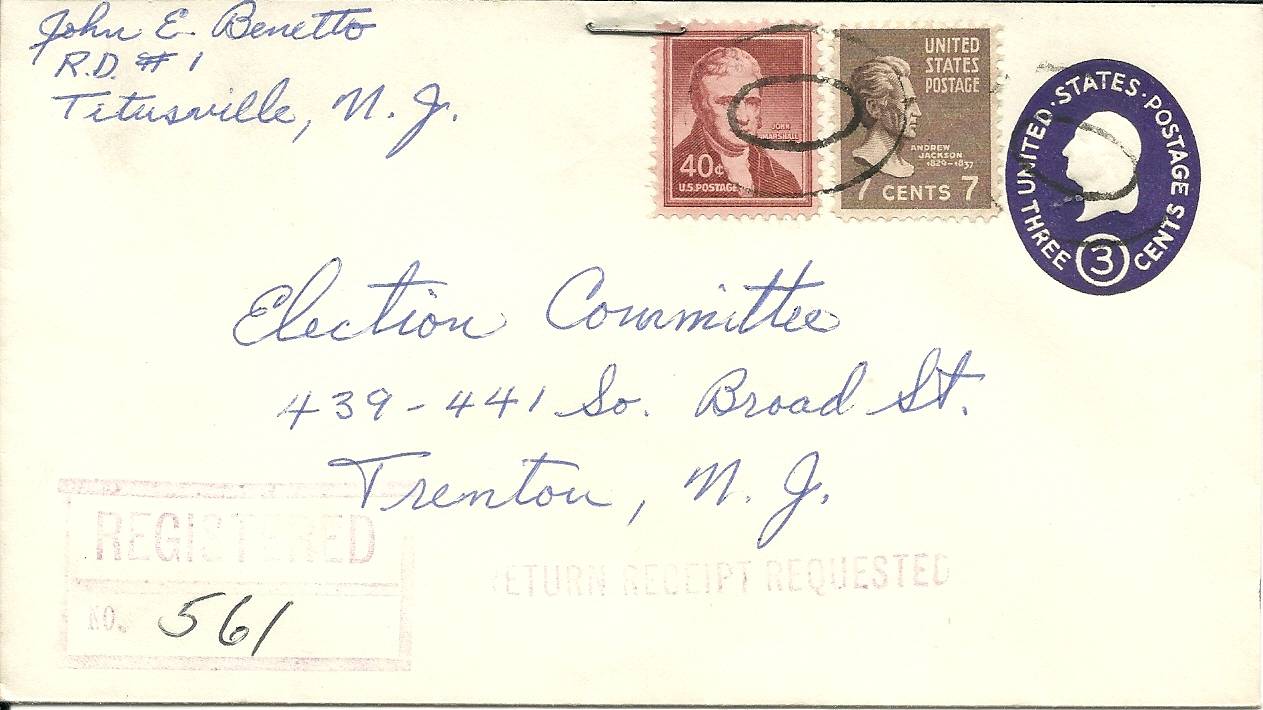 John E. Benetto
R.D. #1
Titusville, N. J.
JOHN
MARSHALL
40¢
U.S. POSTAGE
UNITED
STATES
POSTAGE
ANDREW
JACKSON
1829-1837
7 CENTS 7
UNITED · STATES · POSTAGE
THREE 3 CENTS
Election Committee
439-441 So. Broad St.
Trenton, N. J.
REGISTERED
NO. 561
RETURN RECEIPT REQUESTED